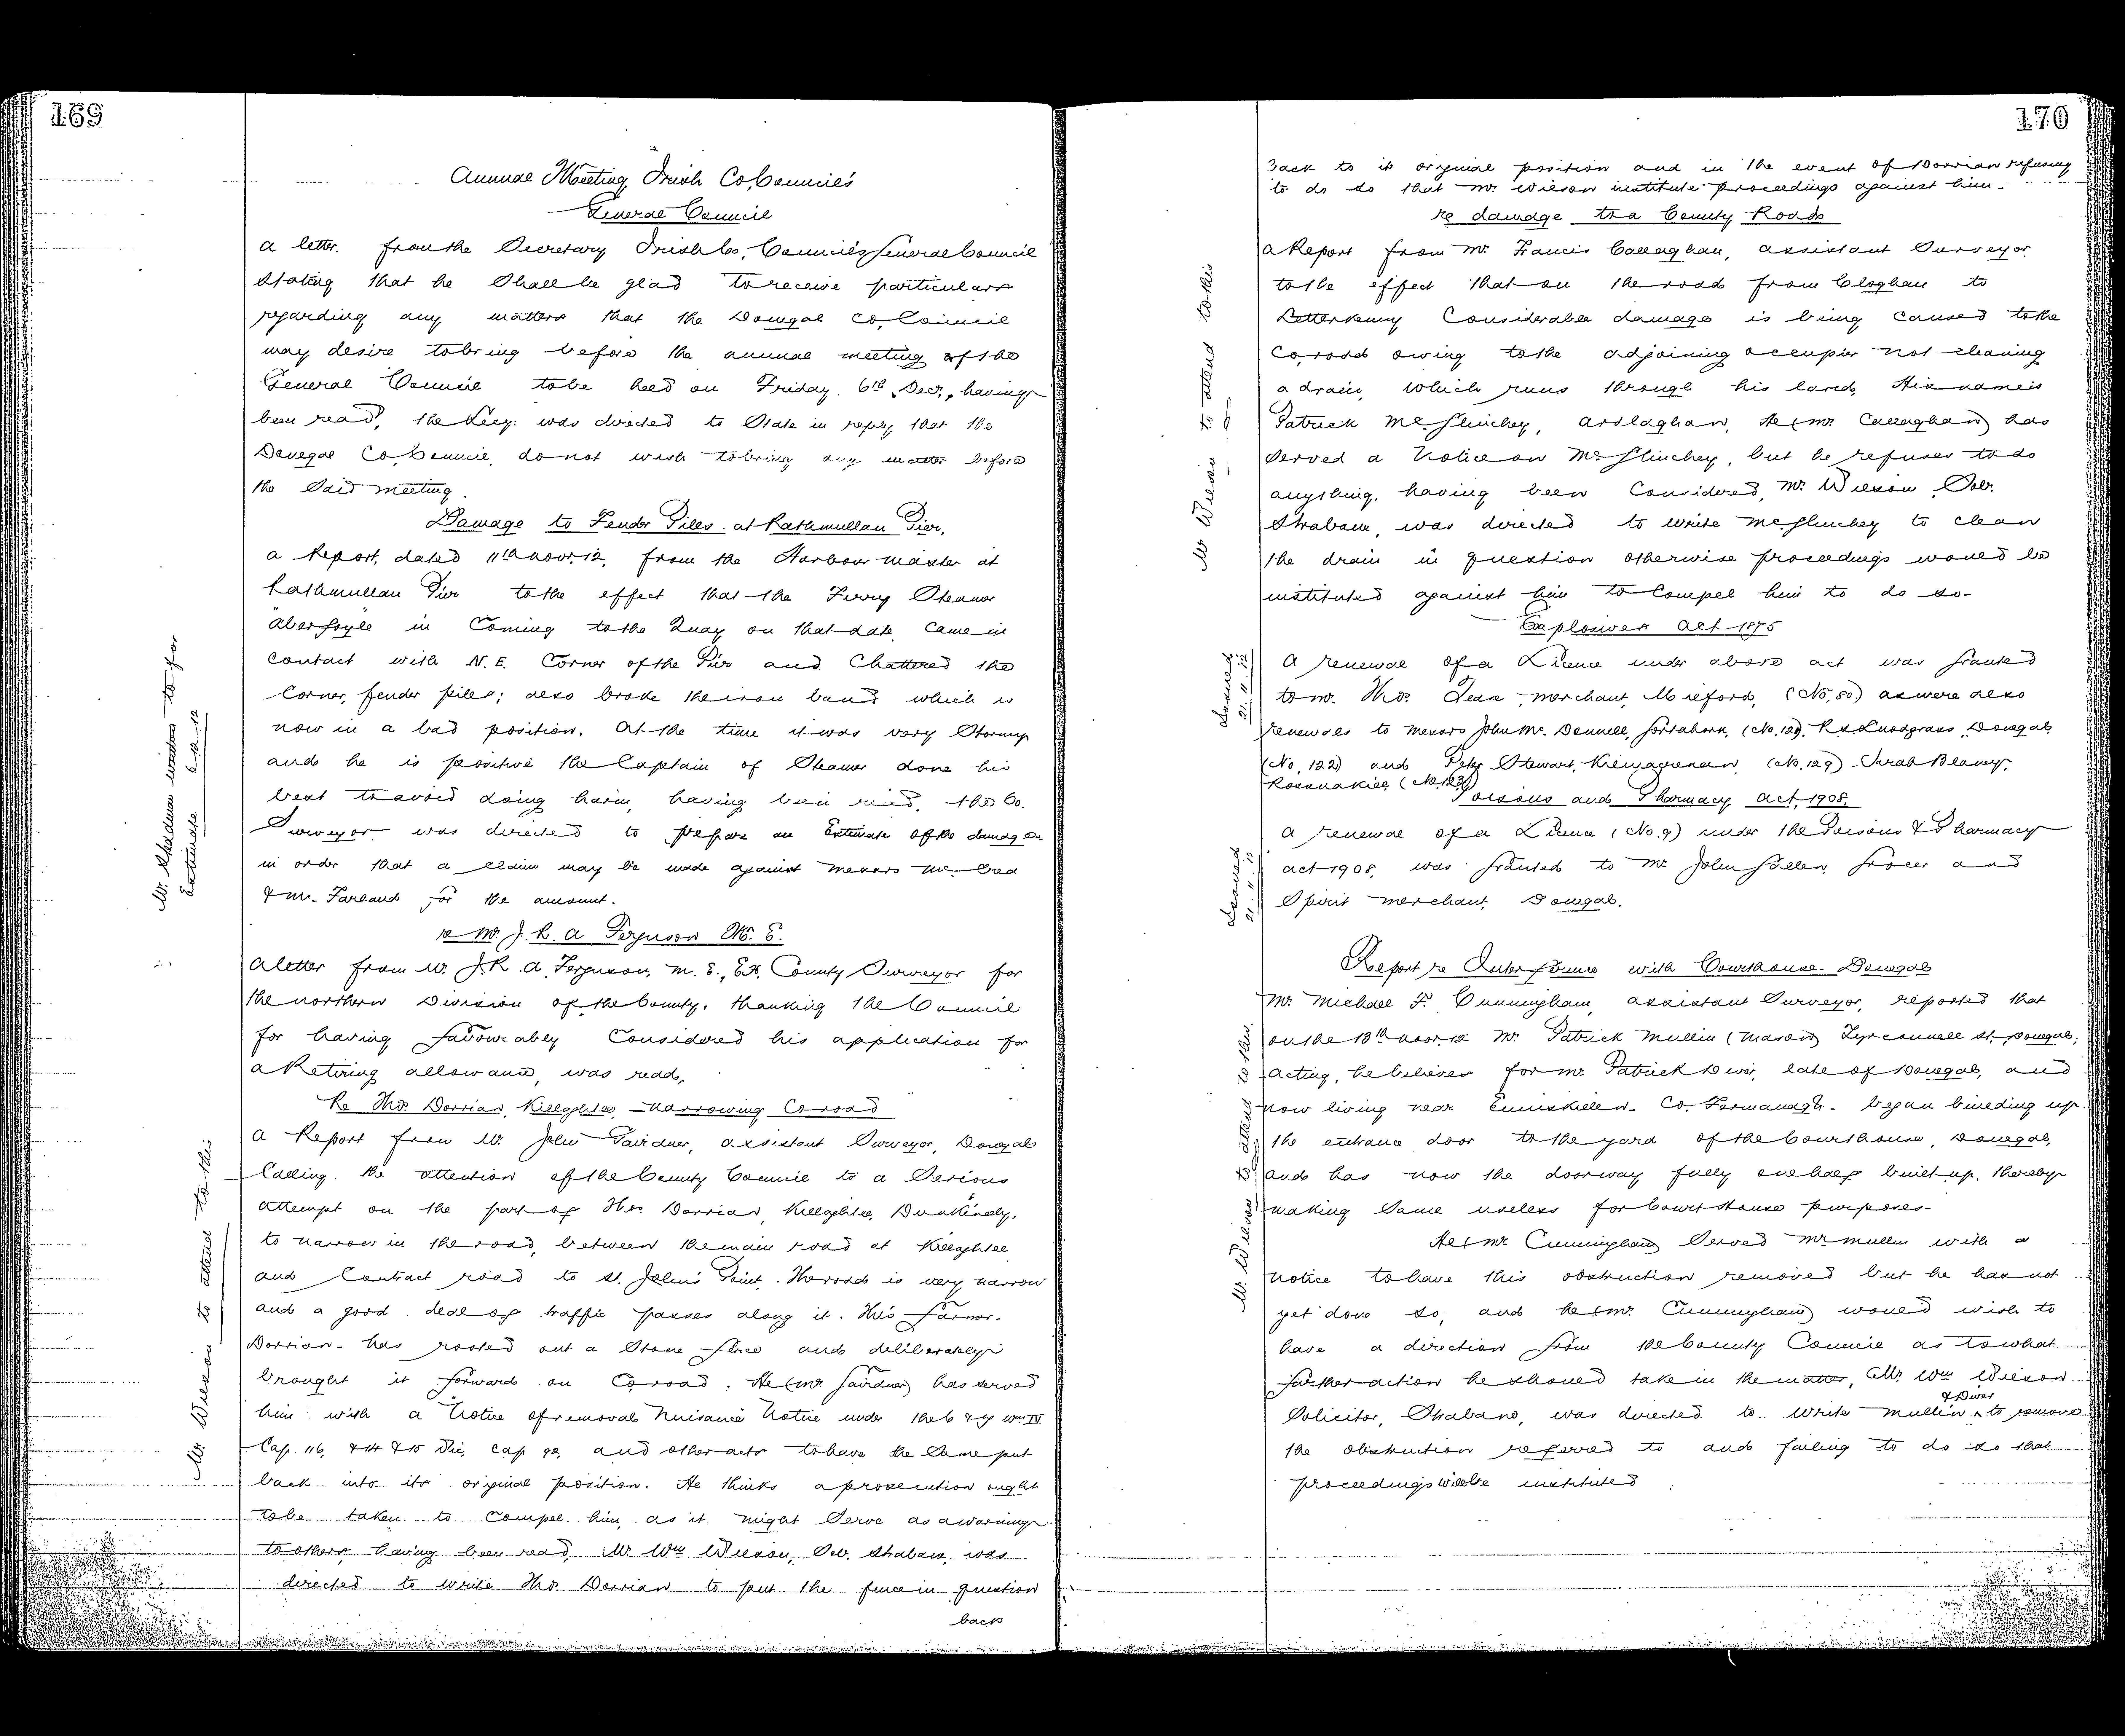 169
Annual Meeting Irish Co. Councils
General Council
a letter from the Secretary Irish Co. Councils General Council
stating that he shall be glad to receive particulars
regarding any matters that the Donegal Co. Council
may desire to bring before the annual meeting of the
General Council to be held on Friday 6th Decr., having
been read, the Secy. was directed to state in reply that the
Donegal Co. Council do not wish to bring any matter before
the said meeting.
Damage to Fender Piles at Rathmullan Pier.
a Report, dated 11th Novr. 12, from the Harbour master at
Rathmullan Pier to the effect that the Ferry Steamer
Aberfoyle in coming to the Quay on that date, came in
contact with N.E. Corner of the Pier and Chattered the
Corner, fender piles; also broke the iron band which is
now in a bad position. At the time it was very Stormy
and he is positive the Captain of Steamer done his
best to avoid doing harm, having been read, the Co.
Surveyor was directed to prepare an Estimate of the damage
in order that a claim may be made against Messrs McCrea
& McFarland for the amount.
Mr. Rhodman writes to for
Estimate 6.12.12
re Mr. J. R. A. Ferguson M. E.
a letter from Mr. J. R. A. Ferguson, M. E., Ex. County Surveyor for
the northern Division of the County, thanking the Council
for having favourably considered his application for
a Retiring allowance, was read,
Re Thos. Dorrian, Killaghtee, – Narrowing Co. road
a Report from Mr. John Gairdner, assistant Surveyor, Donegal
Calling the attention of the County Council to a Serious
attempt on the part of Thos. Dorrian, Killaghtee, Dunkineely,
to narrow in the road, between the main road at Killaghtee
and Contract road to St. John's Point. The road is very narrow
and a good deal of traffic passes along it. This farmer–
Dorrian– has rooted out a Stone fence and deliberately
brought it forward on Co. road. He (Mr Gairdner) has served
him with a Notice of removal Nuisance Notice under the 6 & 7 Wm IV
Cap. 116, & 14 & 15 Vic, cap 92, and other acts to have the same put
back into its original position. He thinks a prosecution ought
to be taken to compel him, as it might serve as a warning
to others having been read, Mr Wm Wilson, Solr. Strabane, was
directed to write Thos. Dorrian to put the fence in question
back
Mr Wilson to attend to this
170
back to it original position and in the event of Dorrian refusing
to do so that Mr. Wilson institute proceedings against him.
re damage to a County Road
a Report from Mr. Francis Callaghan, assistant Surveyor
to the effect that on the road from Cloghan to
Letterkenny Considerable damage is being caused to the
Co. road owing to the adjoining occupier not cleaning
a drain, which runs through his land, His name is
Patrick McGlinchey, Ardlaghan, He (Mr. Callaghan) has
served a Notice on McGlinchey, but he refuses to do
anything, having been considered, Mr. Wilson, Solr.
Strabane, was directed to write McGlinchey to clean
the drain in question otherwise proceedings would be
instituted against him to compel him to do so–
Mr Wilson to attend to this
Explosives Act 1875
a renewal of a Licence under above act was granted
to Mr. Thos. Dean, merchant, Milford, (No. 80) as were also
renewals to Messrs John McDonnell, Gortahork, (No. 120), R. Snodgrass, Donegal,
(No. 122) and Peter Stewart, (No. 129) Sarah Blaney,
Rossnakill (No. 123)
Issued
21.11.12
Poisons and Pharmacy Act, 1908.
a renewal of a Licence (No. 9) under the Poisons & Pharmacy
act 1908, was granted to Mr John Gallen, Grocer and
Spirit merchant, Donegal.
Issued
21.11.12
Report re Interference with Courthouse– Donegal
Mr. Michael F. Cunningham, assistant Surveyor, reported that
on the 13th Novr. 12 Mr. Patrick Mullin (Mason) Tyrconnell St. Donegal,
acting, he believes for Mr. Patrick Diver, late of Donegal, and
now living near Enniskillen– Co. Fermanagh– began building up
the entrance door to the yard of the Courthouse, Donegal,
and has now the doorway fully one half built up, thereby
making same useless for Court House purposes–
He (Mr. Cunningham) served Mr. Mullin with a
notice to have this obstruction removed but he has not
yet done so; and he (Mr. Cunningham) would wish to
have a direction from the County Council as to what
further action he should take in the matter, Mr. Wm Wilson
Solicitor, Strabane, was directed to write Mullin & Diver to remove
the obstruction referred to and failing to do so that
proceedings will be instituted
Mr. Wilson to attend to this